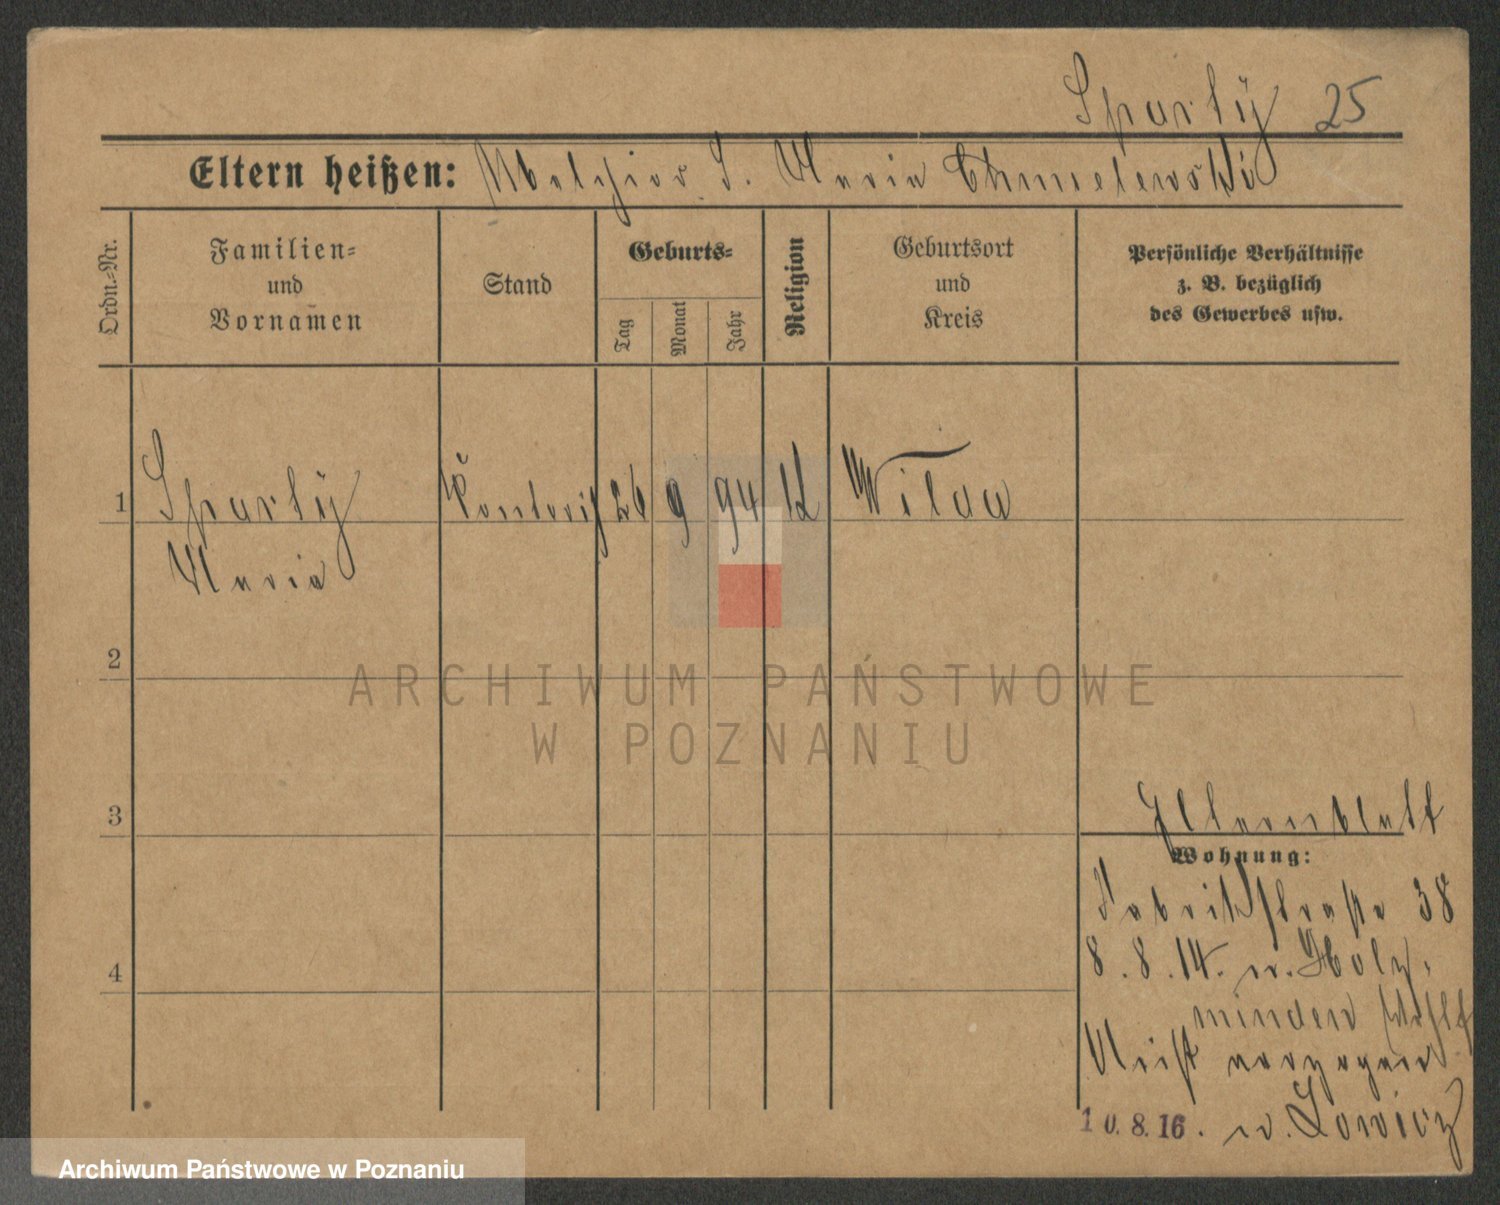 Sparty 25
Eltern heißen: Melchior S. Maria Chmielewski
Ordn.=Nr.
Familien=
und
Vornamen
Stand
Geburts=
Tag
Monat
Jahr
Religion
Geburtsort
und
Kreis
Persönliche Verhältnisse
z. B. bezüglich
des Gewerbes usw.
1 Sparty 26 9 94 k Wilda
Maria
2
ARCHIWUM PAŃSTWOWE
W POZNANIU
3
Elternblatt
Wohnung:
Fabrikstraße 38
8.8.14. n. Holz-
4
minden
verzogen
10.8.16. n. Lowicz
Archiwum Państwowe w Poznaniu